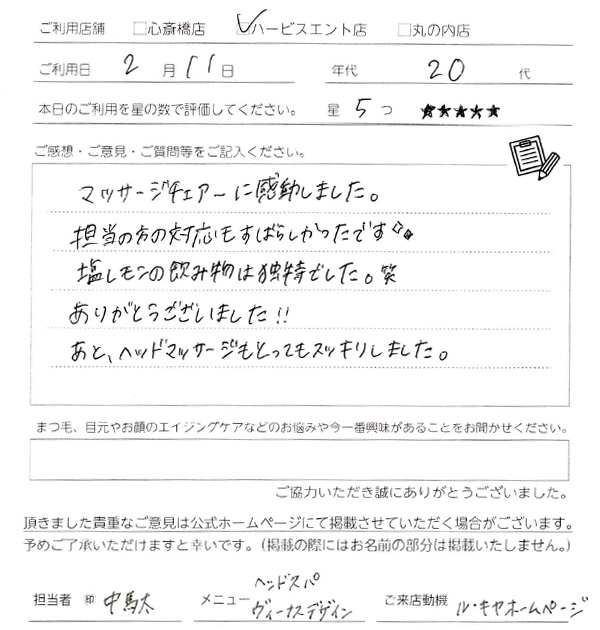 ご利用店舗 □心斎橋店 ☑ハービスエント店 □丸の内店
ご利用日 2 月 11 日 年代 20 代
本日のご利用を星の数で評価してください。 星 5 つ ★★★★★
ご感想・ご意見・ご質問等をご記入ください。
マッサージチェアーに感動しました。
担当の方の対応もすばらしかったです
塩レモンの飲み物は独特でした。笑
ありがとうございました!!
あと、ヘッドマッサージもとってもスッキリしました。
まつ毛、目元やお顔のエイジングケアなどのお悩みや今一番興味があることをお聞かせください。
ご協力いただき誠にありがとうございました。
頂きました貴重なご意見は公式ホームページにて掲載させていただく場合がございます。
予めご了承いただけますと幸いです。(掲載の際にはお名前の部分は掲載いたしません。)
ヘッドスパ
担当者 ㊞ 中馬太 メニュー ヴィーナスデザイン ご来店動機 ル・キヤホームページ